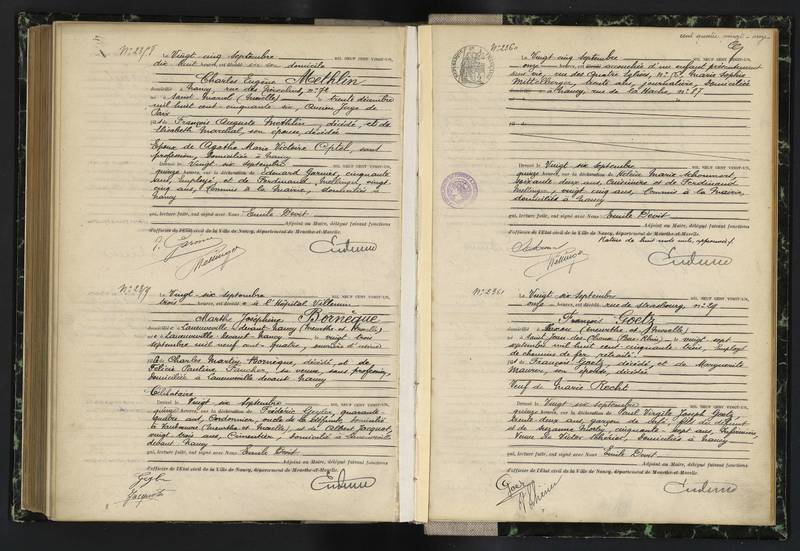 N° 2358
Le Vingt cinq Septembre MIL NEUF CENT VINGT-UN,
dix huit heures, est décédé en son domicile
Charles Eugène Methlin
domicilié à Nancy, rue des n° 72
né à Saint Marcel (Moselle) le trente décembre
mil huit cent cinquante six, ancien Juge de
Paix
fils de François Auguste Methlin décédé, et de
Elisabeth Marchal, son épouse, décédée
Epoux de Agathe Marie Victoire Aptel, sans
profession, domiciliée à Nancy
Dressé le Vingt six Septembre MIL NEUF CENT VINGT-UN,
quinze heures, sur la déclaration de Edouard Garnier, cinquante
ans, Employé, et de Ferdinand Mellinger, vingt
cinq ans, Commis à la Mairie, domiciliés à
Nancy
qui, lecture faite, ont signé avec Nous Emile Devit
Adjoint au Maire, délégué faisant fonctions
d'officier de l'État civil de la Ville de Nancy, département de Meurthe-et-Moselle.
Garnier
Mellinger
N° 2359
Le Vingt six septembre MIL NEUF CENT VINGT-UN,
trois heures, est décédée à l'Hôpital Villemin
Marthe Joséphine Bornèque
domiciliée à Laneuveville devant Nancy (Meurthe et Moselle)
née à Laneuveville devant Nancy le vingt trois
septembre mil neuf cent quatre, ouvrière d'usine
fille de Charles Martin Bornèque, décédé et de
Félicie Pauline Faucher, sa veuve, sans profession,
domiciliée à Laneuveville devant Nancy
Célibataire
Dressé le Vingt six Septembre MIL NEUF CENT VINGT-UN,
quinze heures, sur la déclaration de Frédéric Gegler, quarante
quatre ans, Cordonnier, oncle de la défunte, domicilié
à (Meurthe et Moselle), et de Albert Jacquot,
vingt trois ans, Cimentier, domicilié à Laneuveville
devant Nancy
qui, lecture faite, ont signé avec Nous Emile Devit
Adjoint au Maire, délégué faisant fonctions
d'officier de l'État civil de la Ville de Nancy, département de Meurthe-et-Moselle.
Gegler
Jacquot
cent quatre vingt - onze
N° 2360
Le Vingt cinq septembre MIL NEUF CENT VINGT-UN,
onze heures, est accouchée d'un enfant présentement
sans vie, rue des Quatre Eglises, n° Marie Sophie
Mittelberger, trente ans, journalière, domiciliée
à Nancy, rue de la Hache n° 87
fil de
Dressé le Vingt six septembre MIL NEUF CENT VINGT-UN,
quinze heures, sur la déclaration de Marie
soixante deux ans, Cuisinière et de Ferdinand
Mellinger, vingt cinq ans, Commis à la Mairie,
domiciliés à Nancy
qui, lecture faite, ont signé avec Nous Emile Devit
Adjoint au Maire, délégué faisant fonctions
d'officier de l'État civil de la Ville de Nancy, département de Meurthe-et-Moselle.
Rature de huit mots nuls, approuvée
Mellinger
N° 2361
Le Vingt six septembre MIL NEUF CENT VINGT-UN,
onze heures, est décédé rue de Strasbourg, n° 29
François Goetz
domicilié à (Meurthe et Moselle)
né à Saint Jean des Choux (Bas-Rhin) le vingt sept
septembre mil huit cent cinquante trois, Employé
de chemins de fer retraité
fils de François Goetz, décédé, et de Marguerite
Maurer, son épouse, décédée
Veuf de Marie Recht
Dressé le Vingt six septembre MIL NEUF CENT VINGT-UN,
quinze heures, sur la déclaration de Paul Virgile Joseph Goetz
trente deux ans, garçon de café, fils du défunt
et de Suzanne cinquante-sept ans, Infirmière,
Veuve de Victor domiciliés à Nancy
qui, lecture faite, ont signé avec Nous Emile Devit
Adjoint au Maire, délégué faisant fonctions
d'officier de l'État civil de la Ville de Nancy, département de Meurthe-et-Moselle.
Goetz